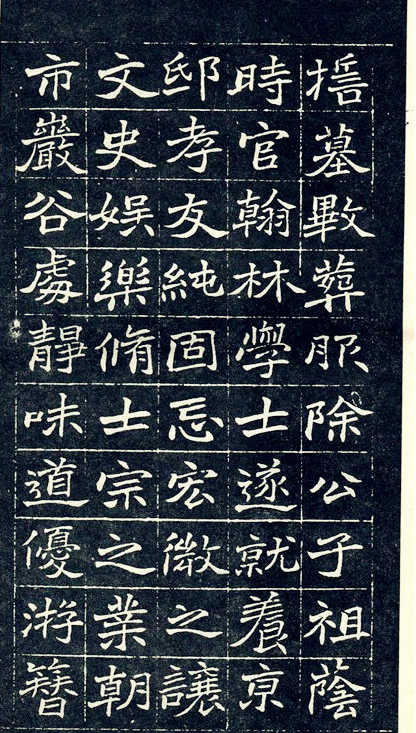 墓葬服除公子祖蔭
時官翰林學士遂就養京
邸孝友純固忌宏微之讓
文史娛樂脩士宗之業朝
市巖谷處靜味道優游簪